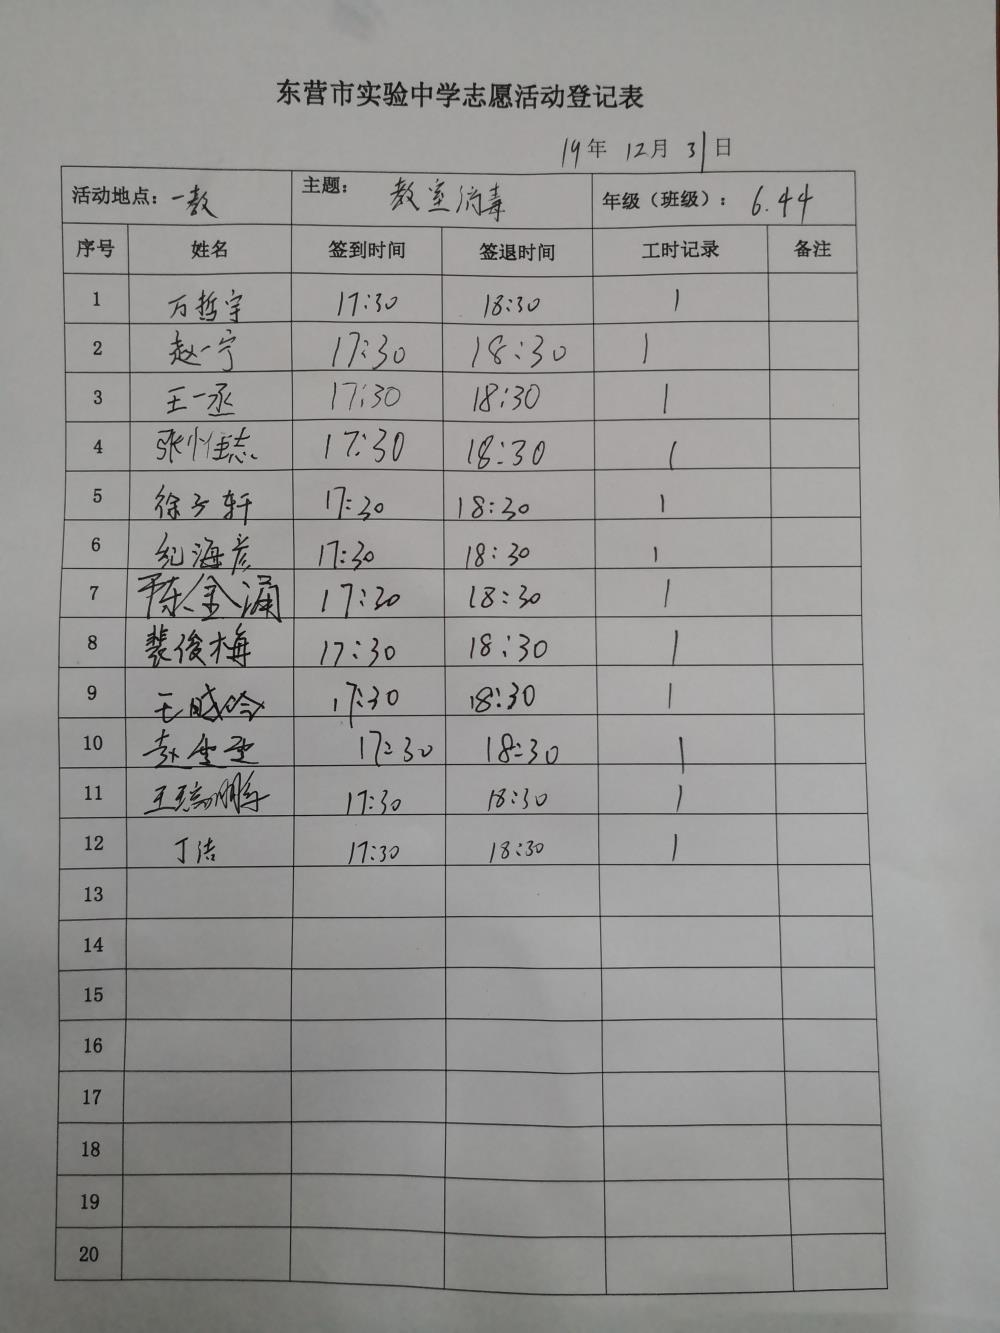 东营市实验中学志愿活动登记表
19年 12月 31日
活动地点：一教 主题：教室消毒 年级（班级）：6.44
序号 姓名 签到时间 签退时间 工时记录 备注
1 万哲宇 17:30 18:30 1
2 赵一宁 17:30 18:30 1
3 王一丞 17:30 18:30 1
4 张惟志 17:30 18:30 1
5 徐子轩 17:30 18:30 1
6 纪海彦 17:30 18:30 1
7 陈金涌 17:30 18:30 1
8 裴俊梅 17:30 18:30 1
9 王晓 17:30 18:30 1
10 赵 17:30 18:30 1
11 王 鹏 17:30 18:30 1
12 丁洁 17:30 18:30 1
13
14
15
16
17
18
19
20